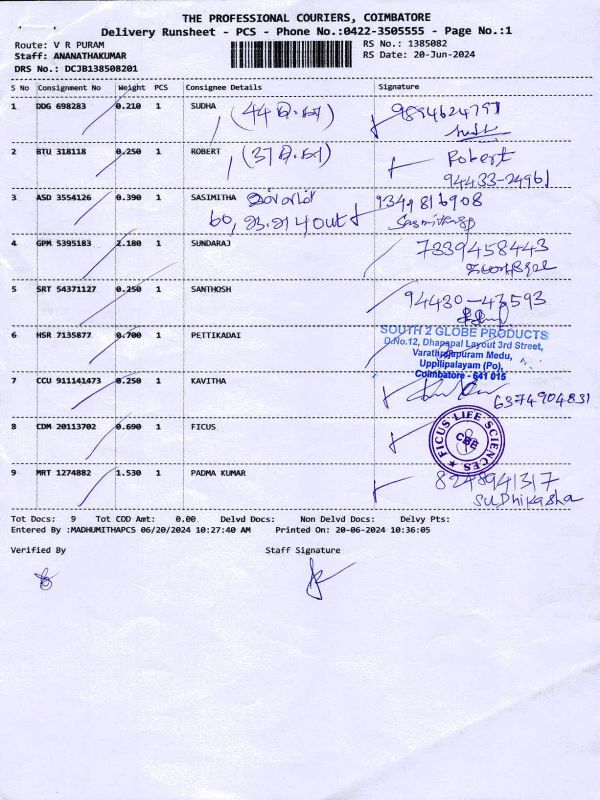 THE PROFESSIONAL COURIERS, COIMBATORE
Delivery Runsheet - PCS - Phone No.:0422-3505555 - Page No.:1
Route: V R PURAM
RS No.: 1385082
Staff: ANANATHAKUMAR
RS Date: 20-Jun-2024
DRS No.: DCJB138508201
S No Consignment No Weight PCS Consignee Details Signature
1 DDG 698283 0.210 1 SUDHA 9894624797
2 BTU 318118 0.250 1 ROBERT Robert
94433-24961
3 ASD 3554126 0.390 1 SASIMITHA 9349816908
4 GPM 5395183 2.180 1 SUNDARAJ 7339458443
5 SRT 54371127 0.250 1 SANTHOSH 94430-47593
6 HSR 7135877 0.700 1 PETTIKADAI
SOUTH 2 GLOBE PRODUCTS
D.No.12, Dhanapal Layout 3rd Street,
Varatharajapuram Medu,
Uppilipalayam (Po),
Coimbatore - 641 015
7 CCU 911141473 0.250 1 KAVITHA 6374904831
8 CDM 20113702 0.690 1 FICUS
FICUS LIFE SCIENCES
CBE
9 MRT 1274882 1.530 1 PADMA KUMAR 8248941317
SUDhikasha
Tot Docs: 9 Tot COD Amt: 0.00 Delvd Docs: Non Delvd Docs: Delvy Pts:
Entered By :MADHUMITHAPCS 06/20/2024 10:27:40 AM Printed On: 20-06-2024 10:36:05
Verified By Staff Signature